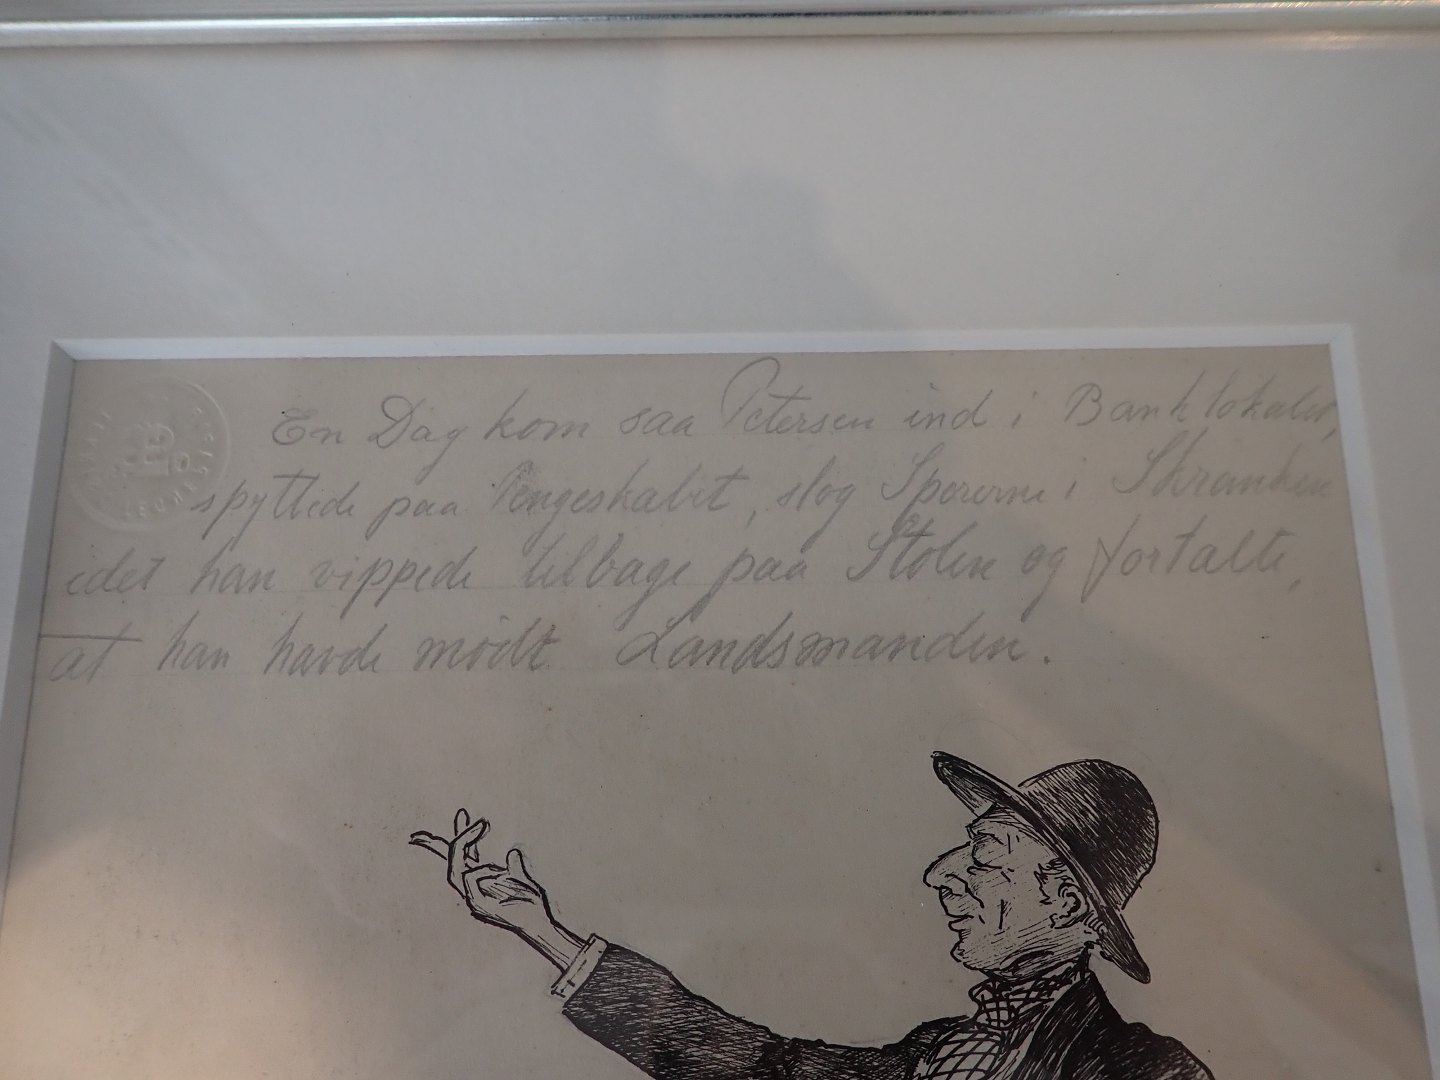 En Dag kom saa Petersen ind i Banklokalet,
spyttede paa Pengeskabet, slog Sporerne i Skranken
idet han vippede tilbage paa Stolen og fortalte,
at han havde mødt Landsmanden.